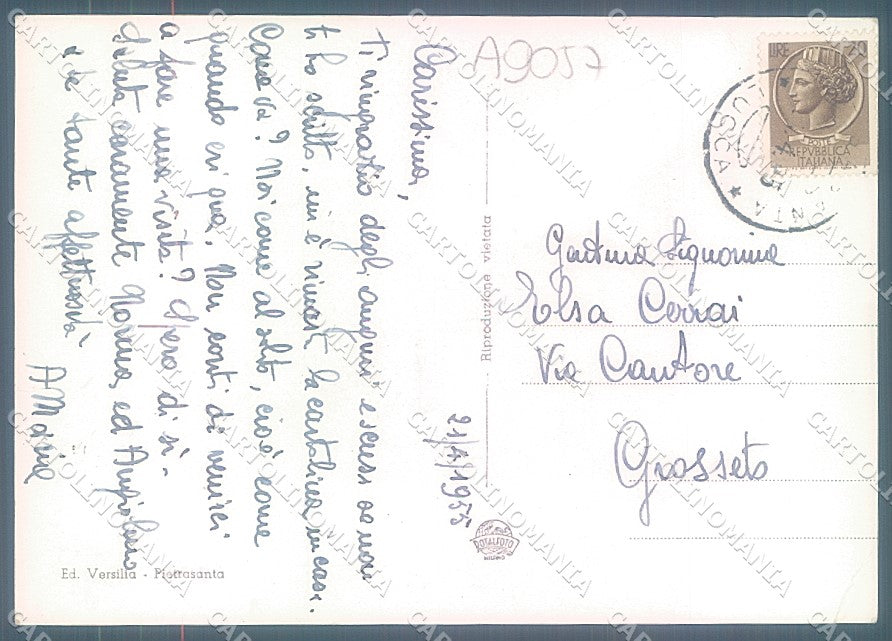 A9057
Carissima,
Ti ringrazio degli auguri e scusa se non
ti ho scritto, mi è rimasta la cartolina in casa.
Come va? Noi come al solito, cioè come
quando eri qua. Non conti di venirci
a fare una visita? Spero di sì.
Saluta caramente Norma, ed
a te tante affettuosità
21/4/1955
LIRE 20
POSTE
REPVBBLICA
ITALIANA
LUCCA
Gentma Signorina
Elsa Cerrai
Via Cantore
Grosseto
Riproduzione vietata
ROTALFOTO
MILANO
Ed. Versilia - Pietrasanta
CARTOLINOMANIA